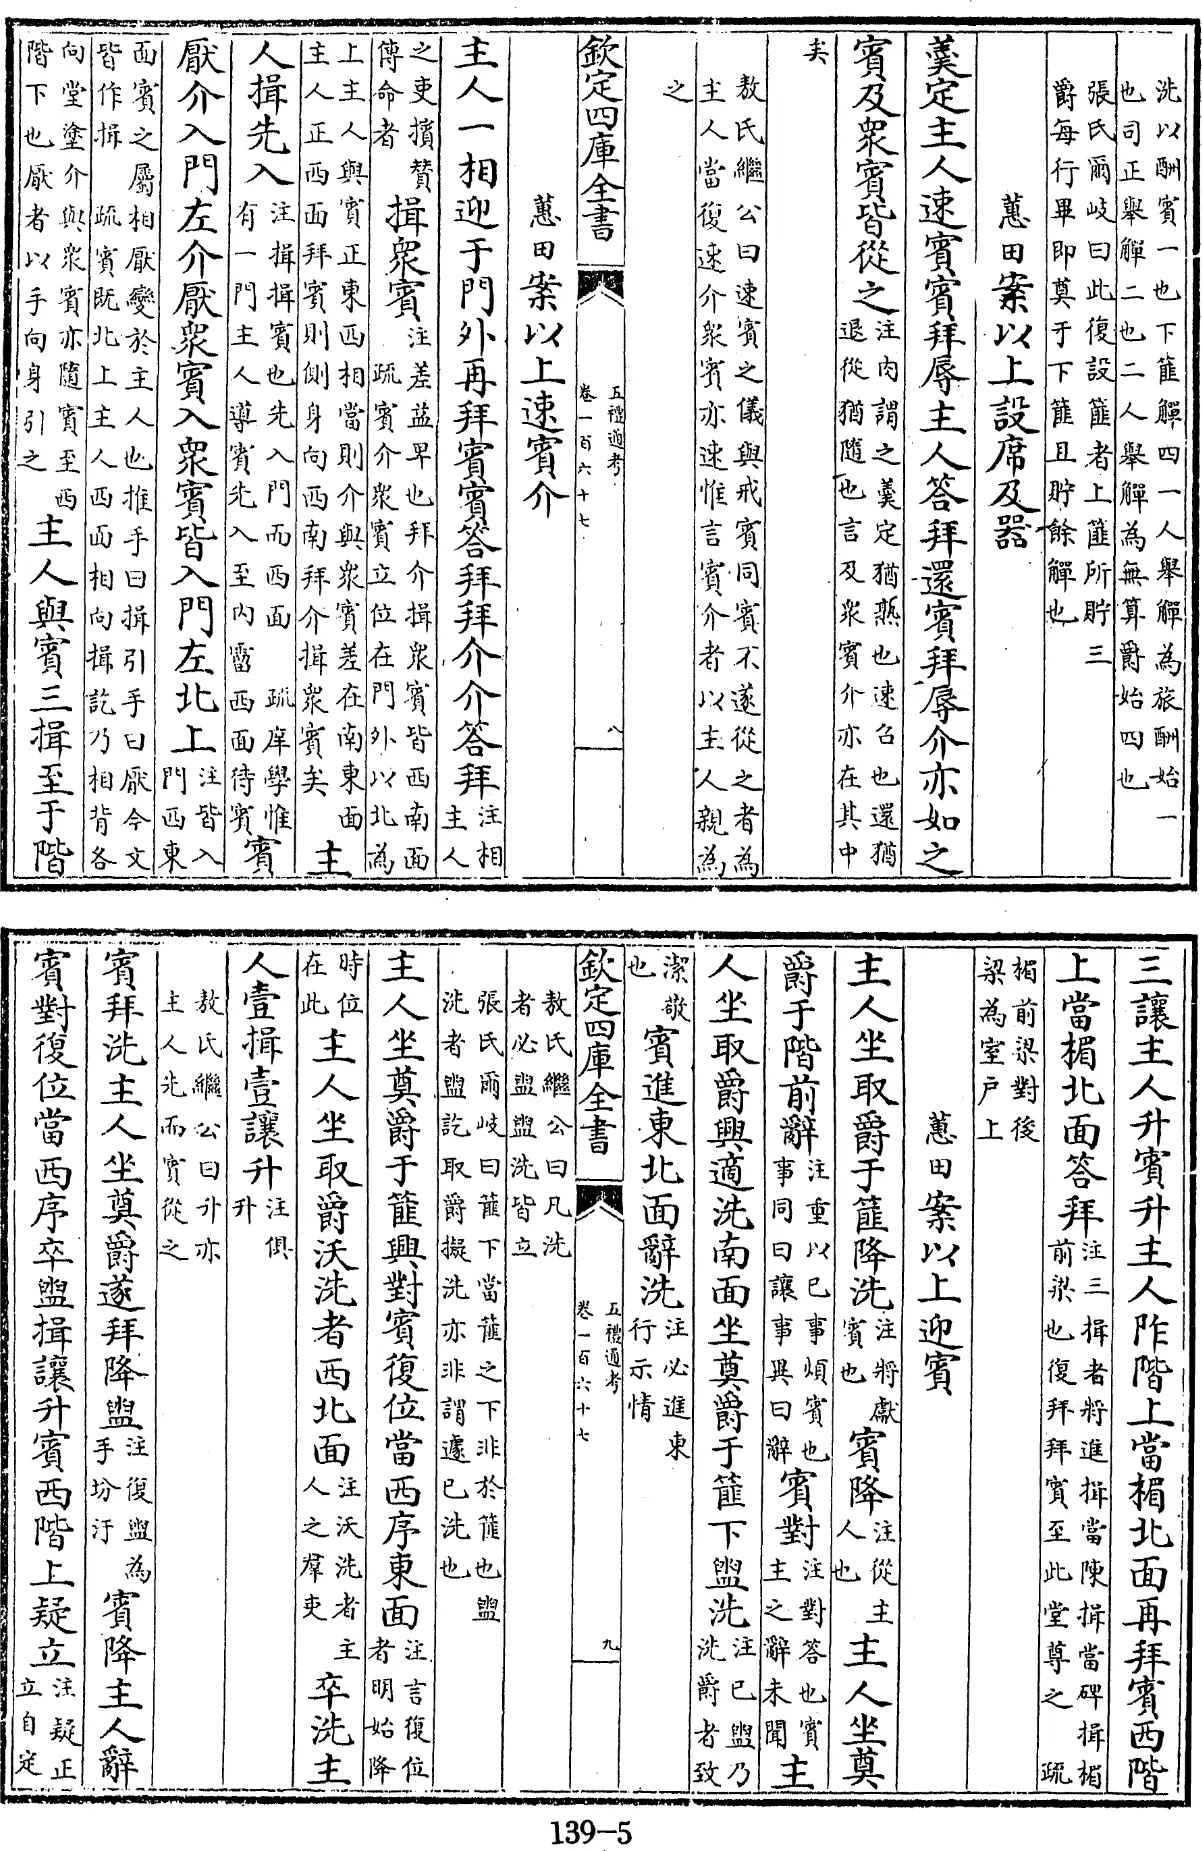 洗以酬賓一也下篚觶四一人舉觶為旅酬始一
也司正舉觶二也二人舉觶為無算爵始四也
張氏爾岐曰此復設篚者上篚所貯三
爵每行畢即奠于下篚且貯餘觶也
蕙田案以上設席及器
羮定主人速賓賓拜辱主人答拜還賓拜辱介亦如之
賓及衆賓皆從之注肉謂之羮定猶熟也速召也還猶退從猶隨也言及衆賓介亦在其中
矣
敖氏繼公曰速賓之儀與戒賓同賓不遂從之者為
主人當復速介衆賓亦速惟言賓介者以主人親為
之
欽定四庫全書 五禮通考 卷一百六十七 八
蕙田案以上速賓介
主人一相迎于門外再拜賓賓答拜拜介介答拜注相主人
之吏擯賛傳命者揖衆賓注差益卑也拜介揖衆賓皆西南面疏賓介衆賓立位在門外以北為
上主人與賓正東西相當則介與衆賓差在南東面主人正西面拜賓則側身向西南拜介揖衆賓矣主
人揖先入注揖揖賓也先入門而西面 疏庠學惟有一門主人導賓先入至内霤西面待賓賓
厭介入門左介厭衆賓入衆賓皆入門左北上注皆入門西東
面賓之屬相厭變於主人也推手曰揖引手曰厭今文皆作揖 疏賓既北上主人西面相向揖訖乃相背各
向堂塗介與衆賓亦隨賓至西階下也厭者以手向身引之主人與賓三揖至于階
三讓主人升賓升主人阼階上當楣北面再拜賓西階
上當楣北面答拜注三揖者將進揖當陳揖當碑揖楣前梁也復拜拜賓至此堂尊之 疏
楣前梁對後梁為室户上
蕙田案以上迎賓
主人坐取爵于篚降洗注將獻賓也賓降注從主人也主人坐奠
爵于階前辭注重以已事煩賓也事同曰讓事異曰辭賓對注對答也賓主之辭未聞主
人坐取爵興適洗南面坐奠爵于篚下盥洗注已盥乃洗爵者致
潔敬也賓進東北面辭洗注必進東行示情
欽定四庫全書 五禮通考 卷一百六十七 九
敖氏繼公曰凡洗
者必盥盥洗皆立
張氏爾岐曰篚下當篚之下非於篚也盥
洗者盥訖取爵擬洗亦非謂遽已洗也
主人坐奠爵于篚興對賓復位當西序東面注言復位者明始降
時位在此主人坐取爵沃洗者西北面注沃洗者主人之羣吏卒洗主
人壹揖壹讓升注俱升
敖氏繼公曰升亦
主人先而賓從之
賓拜洗主人坐奠爵遂拜降盥注復盥為手坋汙賓降主人辭
賓對復位當西序卒盥揖讓升賓西階上疑立注疑正立自定
139-5